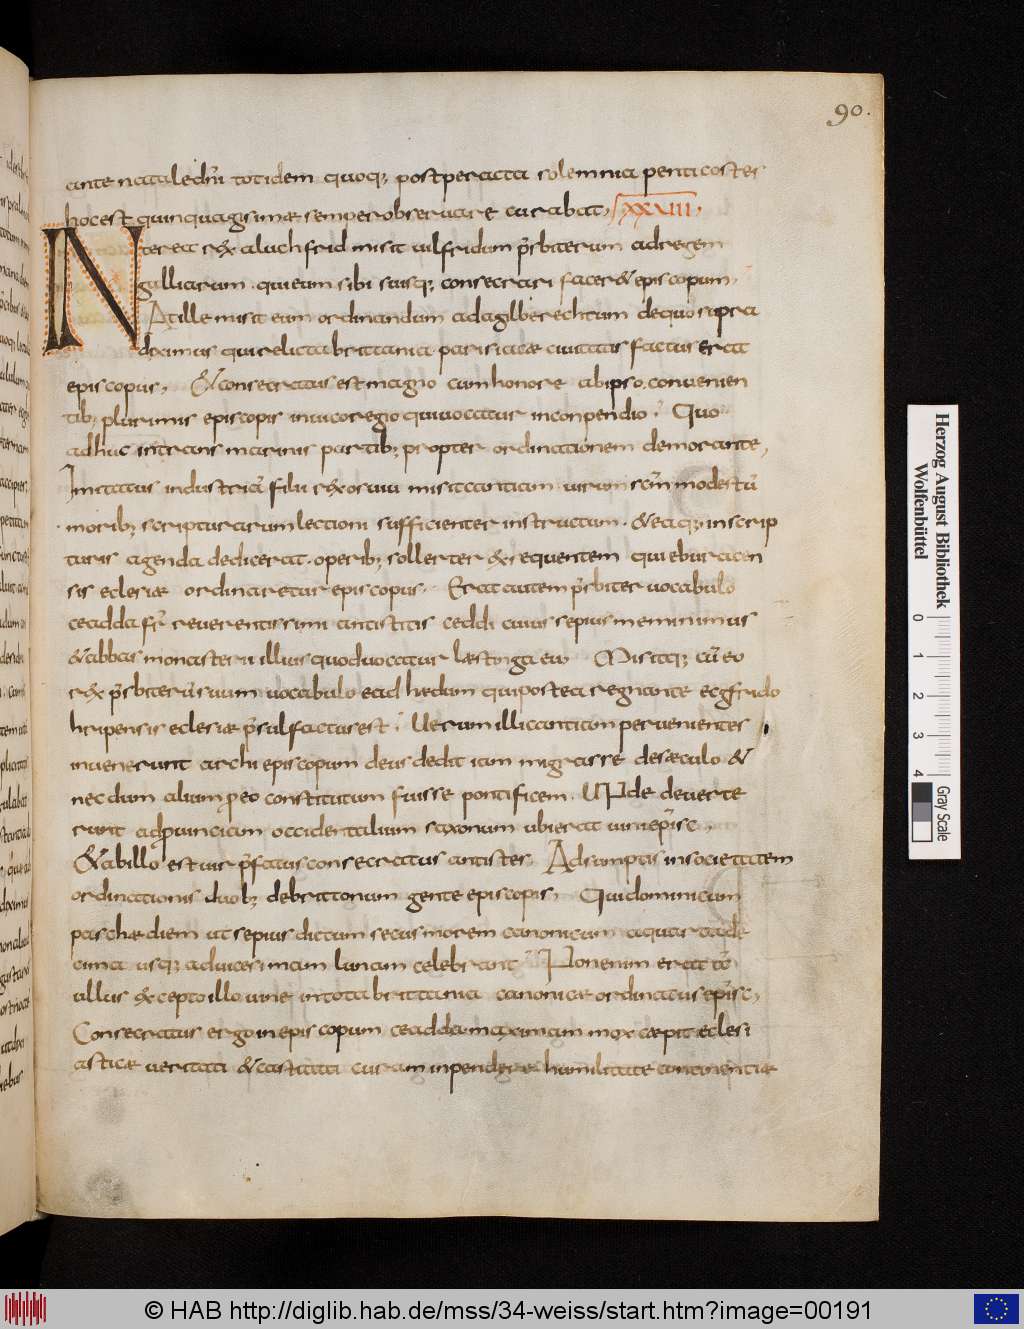 90.
ante natale dñi totidem quoq; post peracta solemnia penticostes
hoc est quinquagisimae semper obseruare curabat, XXVIII.
INterea rex aluchfrid misit uilfridum p̄rbiterum ad regem
galliarum. qui eum sibi suisq; consecrari faceret episcopum.
At ille misit eum ordinandum ad agilberechtum de quo supra
diximus qui relicta brittania parisiacae ciuitatis factus erat
episcopus, & consecratus est magno cum honore ab ipso conuenien
tib; plurimis episcopis in uico regio qui uocatur in conpendio. Quo
adhuc in trans marinis partib; propter ordinationem demorante,
Imitatus industriā filii rex osuiu misit cantiam uirum scm̄ modestū
morib; scripturarum lectioni sufficienter instructum. & ea q; in scrip
turis agenda dedicerat. operib; sollerter exsequentem qui eburacen
sis eclesiae ordinaretur episcopus. Erat autem p̄rbiter uocabulo
ceadda fr̄ reuerentissimi antistitis ceddi cuius sepius meminimus
& abbas monasterii illius quod uocatur læstinga eu. Misitq; cū eo
rex p̄rbiterū suum uocabulo eadhaedum qui postea regnante ecgfrido
hripensis eclesiae p̄sul factus est. Uerum illi cantiam peruenientes
inuenerunt archiepiscopum deusdedit iam migrasse de saeculo &
necdum alium p eo constitutum fuisse pontificem. Unde deuerte
runt ad puinciam occidentalium saxonum ubi erat uini episc,
& ab illo est uir p̄fatus consecratus antistes, Adsumptis in societatem
ordinationis duob; de brittonum gente episcopis, Qui dominicum
paschae diem ut sepius dictum secus morem canonicum a quarta de
cima usq; ad uicesimam lunam celebrant. Non enim erat tc̄
ullus excepto illo uine in tota brittania canonicae ordinatus ep̄isc,
Consecratus ergo in episcopum ceadda maximam mox caepit eclesi
asticae ueritati & castitati curam inpendere humilitate continentiae
Herzog August Bibliothek
Wolfenbüttel
0 1 2 3 4 Gray Scale
© HAB http://diglib.hab.de/mss/34-weiss/start.htm?image=00191